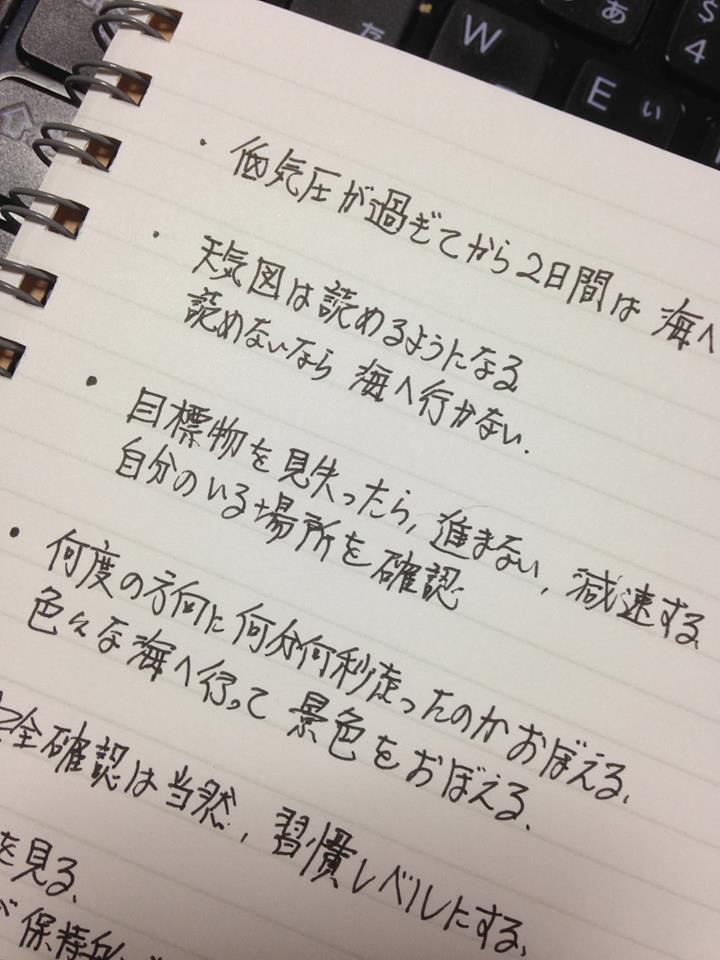 た
W
E
ぃ
あ
S
4
・低気圧が過ぎてから2日間は 海へ
・天気図は読めるようになる
読めないなら 海へ行かない.
・目標物を見失ったら, 進まない, 減速する,
自分のいる場所を確認
・何度の方向に何分何秒走ったのかおぼえる,
色々な海へ行って 景色をおぼえる.
全確認は当然, 習慣レベルにする,
を見る,
保持